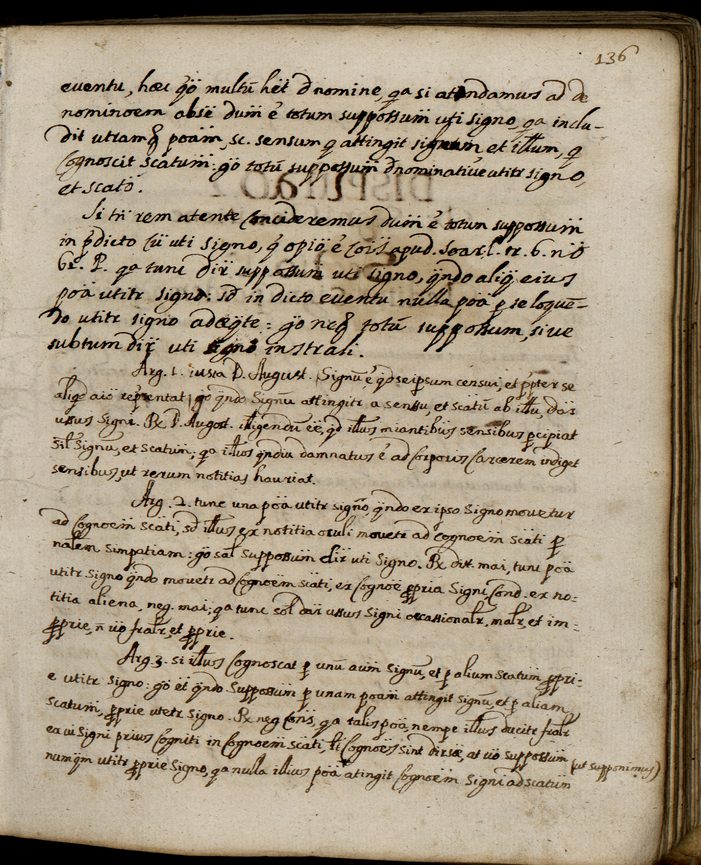 136
eventu, hæc g̃o multũ hẽt d̃nomine, q̃a si atendamus ad de
nominoem absẽ dum̃ ẽ totum suppossum̃ uti signo, q̃a inclu-
dit utramq̃ poam̃, sc. sensum q attingit signum et illum, q
Cognoscit scatum̃: g̃o totũ suppossum̃ d̃nominative utitr signo,
et scato.
Si tñ rem atente Concideremus dum̃ ẽ totun suppossum̃
in p̃dicto uti signo, q opiõ ẽ Cois apud. Soar. tr. 6. n
P. q̃a tunc dir̃ suppossum uti signo, q̃ndo aliq̃ eius
poã utitr signo: sd in dicto eventu nulla poã p se loque-
do utitr signo adeq̃te: g̃o neq̃ totũ suppossum, sive
subtum dir̃ uti signo instrali.
Arg. 1. iusta D. August. Signũ ẽ qd seipsum censui, et p̃pter se
aliq̃d aio rep̃rentat, g̃o q̃ndo Signu attingitr a sensu, et scatũ ab illu, dar̃
ussus Signi. R̃ D. August. illigendu ẽẽ, qd illus miantibus sensibus p̃cipiat
Signũ, et scatum̃; q̃a illus q̃ndiu damnatus ẽ ad Corporis Carcerem indiget
sensibus, ut rerum notitias hauriat.
Arg. 2. tunc una poã utitr signo q̃ndo ex ipso Signo movetur
ad Cognoem̃ scati, sd illus ex notitia oculi movetr ad cognoem̃ scati p
nalem simpatiam: g̃o sal suppossum dir̃ uti Signo. R̃ dist. mai, tunc poã
utitr Signo q̃ndo movetr ad Cognoem̃ scati, ex Cognoe p̃pria Signi, Cond. ex no-
titia aliena, neg. mai; q̃a tunc sol dar̃ ussus Signi occassionalr. malr, et im-
p̃prie, ñ uo fralr, et p̃prie.
Arg. 3. si illus Cognoscat p unũ aum̃ Signũ, et p alium scatum̃ p̃pri-
e utitr signo: g̃o et q̃ndo Suppossum̃ p unam poam̃ attingit signũ, et p aliam
scatum̃, p̃prie utetr signo. R̃ neg. Cons, q̃a talis poã, nempe illus ducitr fralr
ea vi Signi prius Cogniti in Cognoem̃ scati, li Cognoes sint dirsæ, at uo suppossum̃ (ut supponimus)
numq̃m utitr p̃prie Signo, q̃a nulla illius poã atingit Cognoem̃ Signi ad scatum